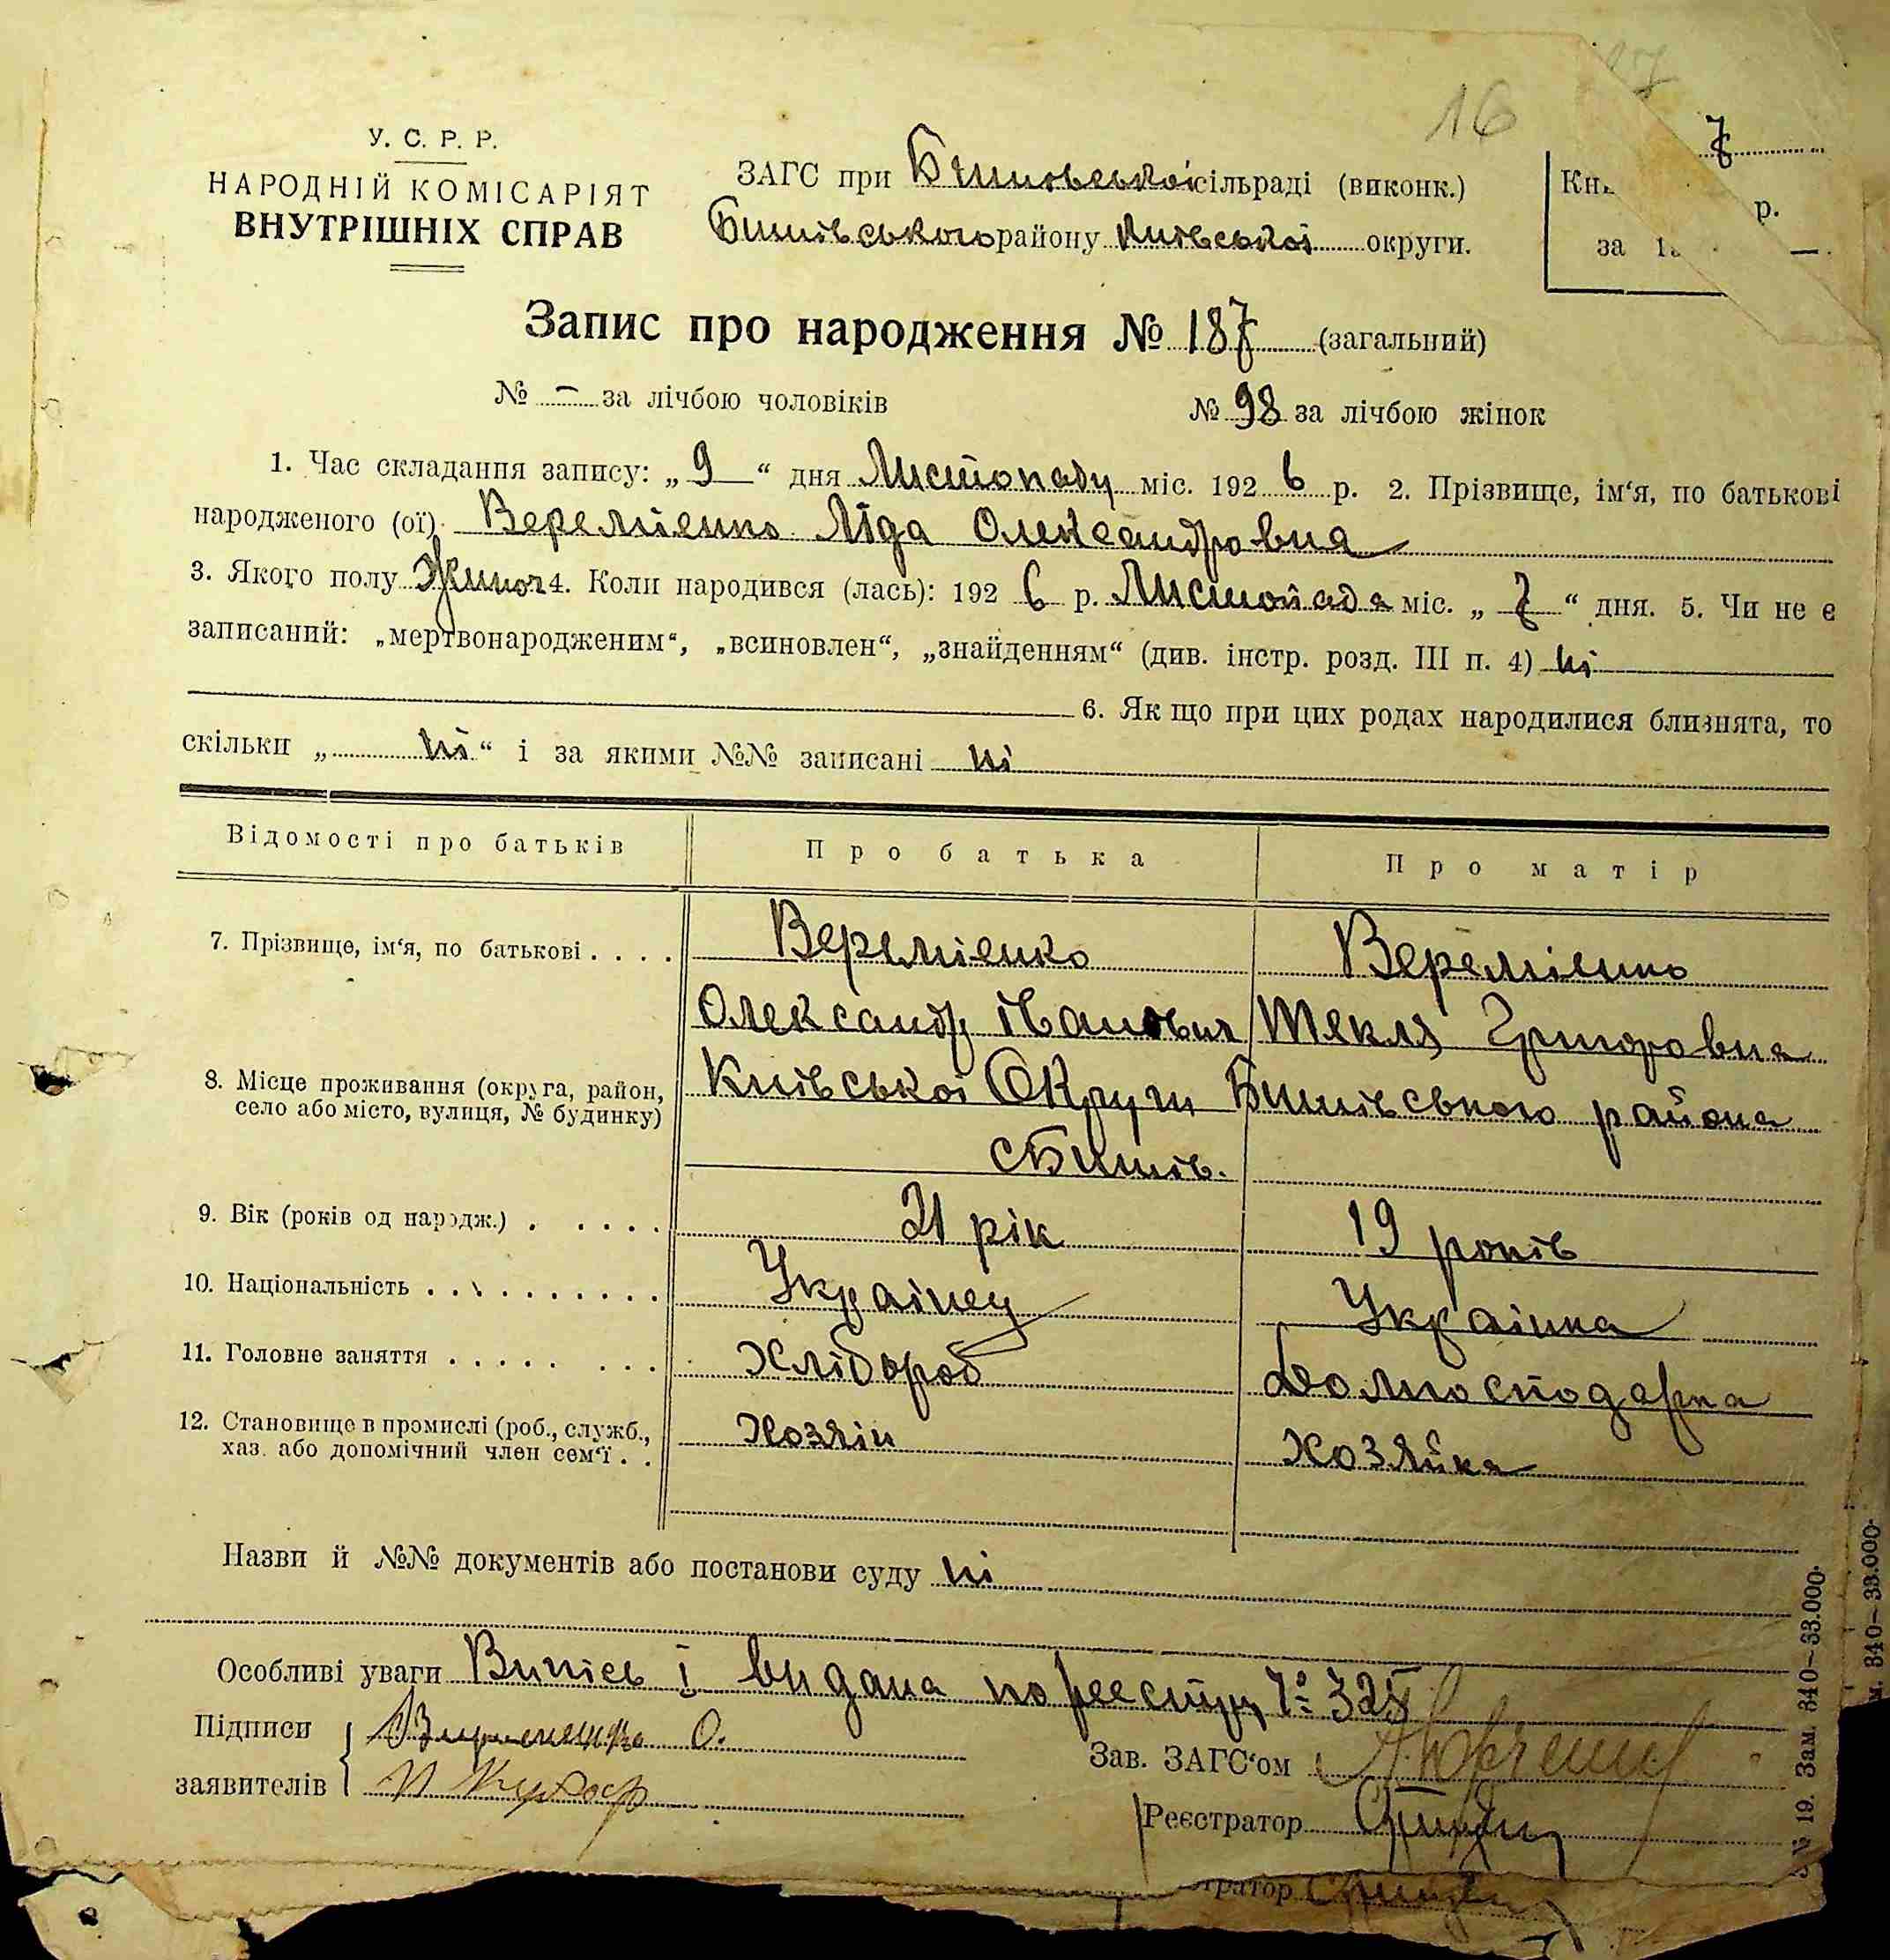 16
У. С. Р. Р.
НАРОДНІЙ КОМІСАРІЯТ
ВНУТРІШНІХ СПРАВ
ЗАГС при Бишовської сільраді (виконк.)
Бишівського району Київської округи.
7
р.
за 1
Запис про народження № 187 (загальний)
№ – за лічбою чоловіків № 98 за лічбою жінок
1. Час складання запису: „ 9 “ дня Листопаду міс. 192 6 р. 2. Прізвище, ім‘я, по батькові
народженого (ої) Веремієнко Ліда Олександровна
3. Якого полу Жіноч 4. Коли народився (лась): 192 6 р. Листопада міс. „ 7 “ дня. 5. Чи не є
записаний: „мертвонародженим“, „всиновлен“, „знайденням“ (див. інстр. розд. III п. 4) ні
6. Як що при цих родах народилися близнята, то
скільки „ ні “ і за якими №№ записані ні
Відомості про батьків Про батька Про матір
7. Прізвище, ім‘я, по батькові . . . . Веремієнко Веремієнко
Олександр Іванович Текля Григоровна
8. Місце проживання (округа, район, село або місто, вулиця, № будинку) Київської Округи Бишівського района
с Бишів.
9. Вік (років од народж.) . . . . . 21 рік 19 років
10. Національність . . . . . . . . . . Українец Українка
11. Головне заняття . . . . . . . . Хлібороб Домгосподарка
12. Становище в промислі (роб., служб., хаз. або допомічний член сем‘ї . . Хозяін Хозяйка
Назви й №№ документів або постанови суду ні
Особливі уваги Випісь і видана по реєстру № 325
Підписи О.
заявителів Кухар
Зав. ЗАГС‘ом
Реєстратор
№ 19. Зам. 340–33.000.
м. 340–33.000.
тратор